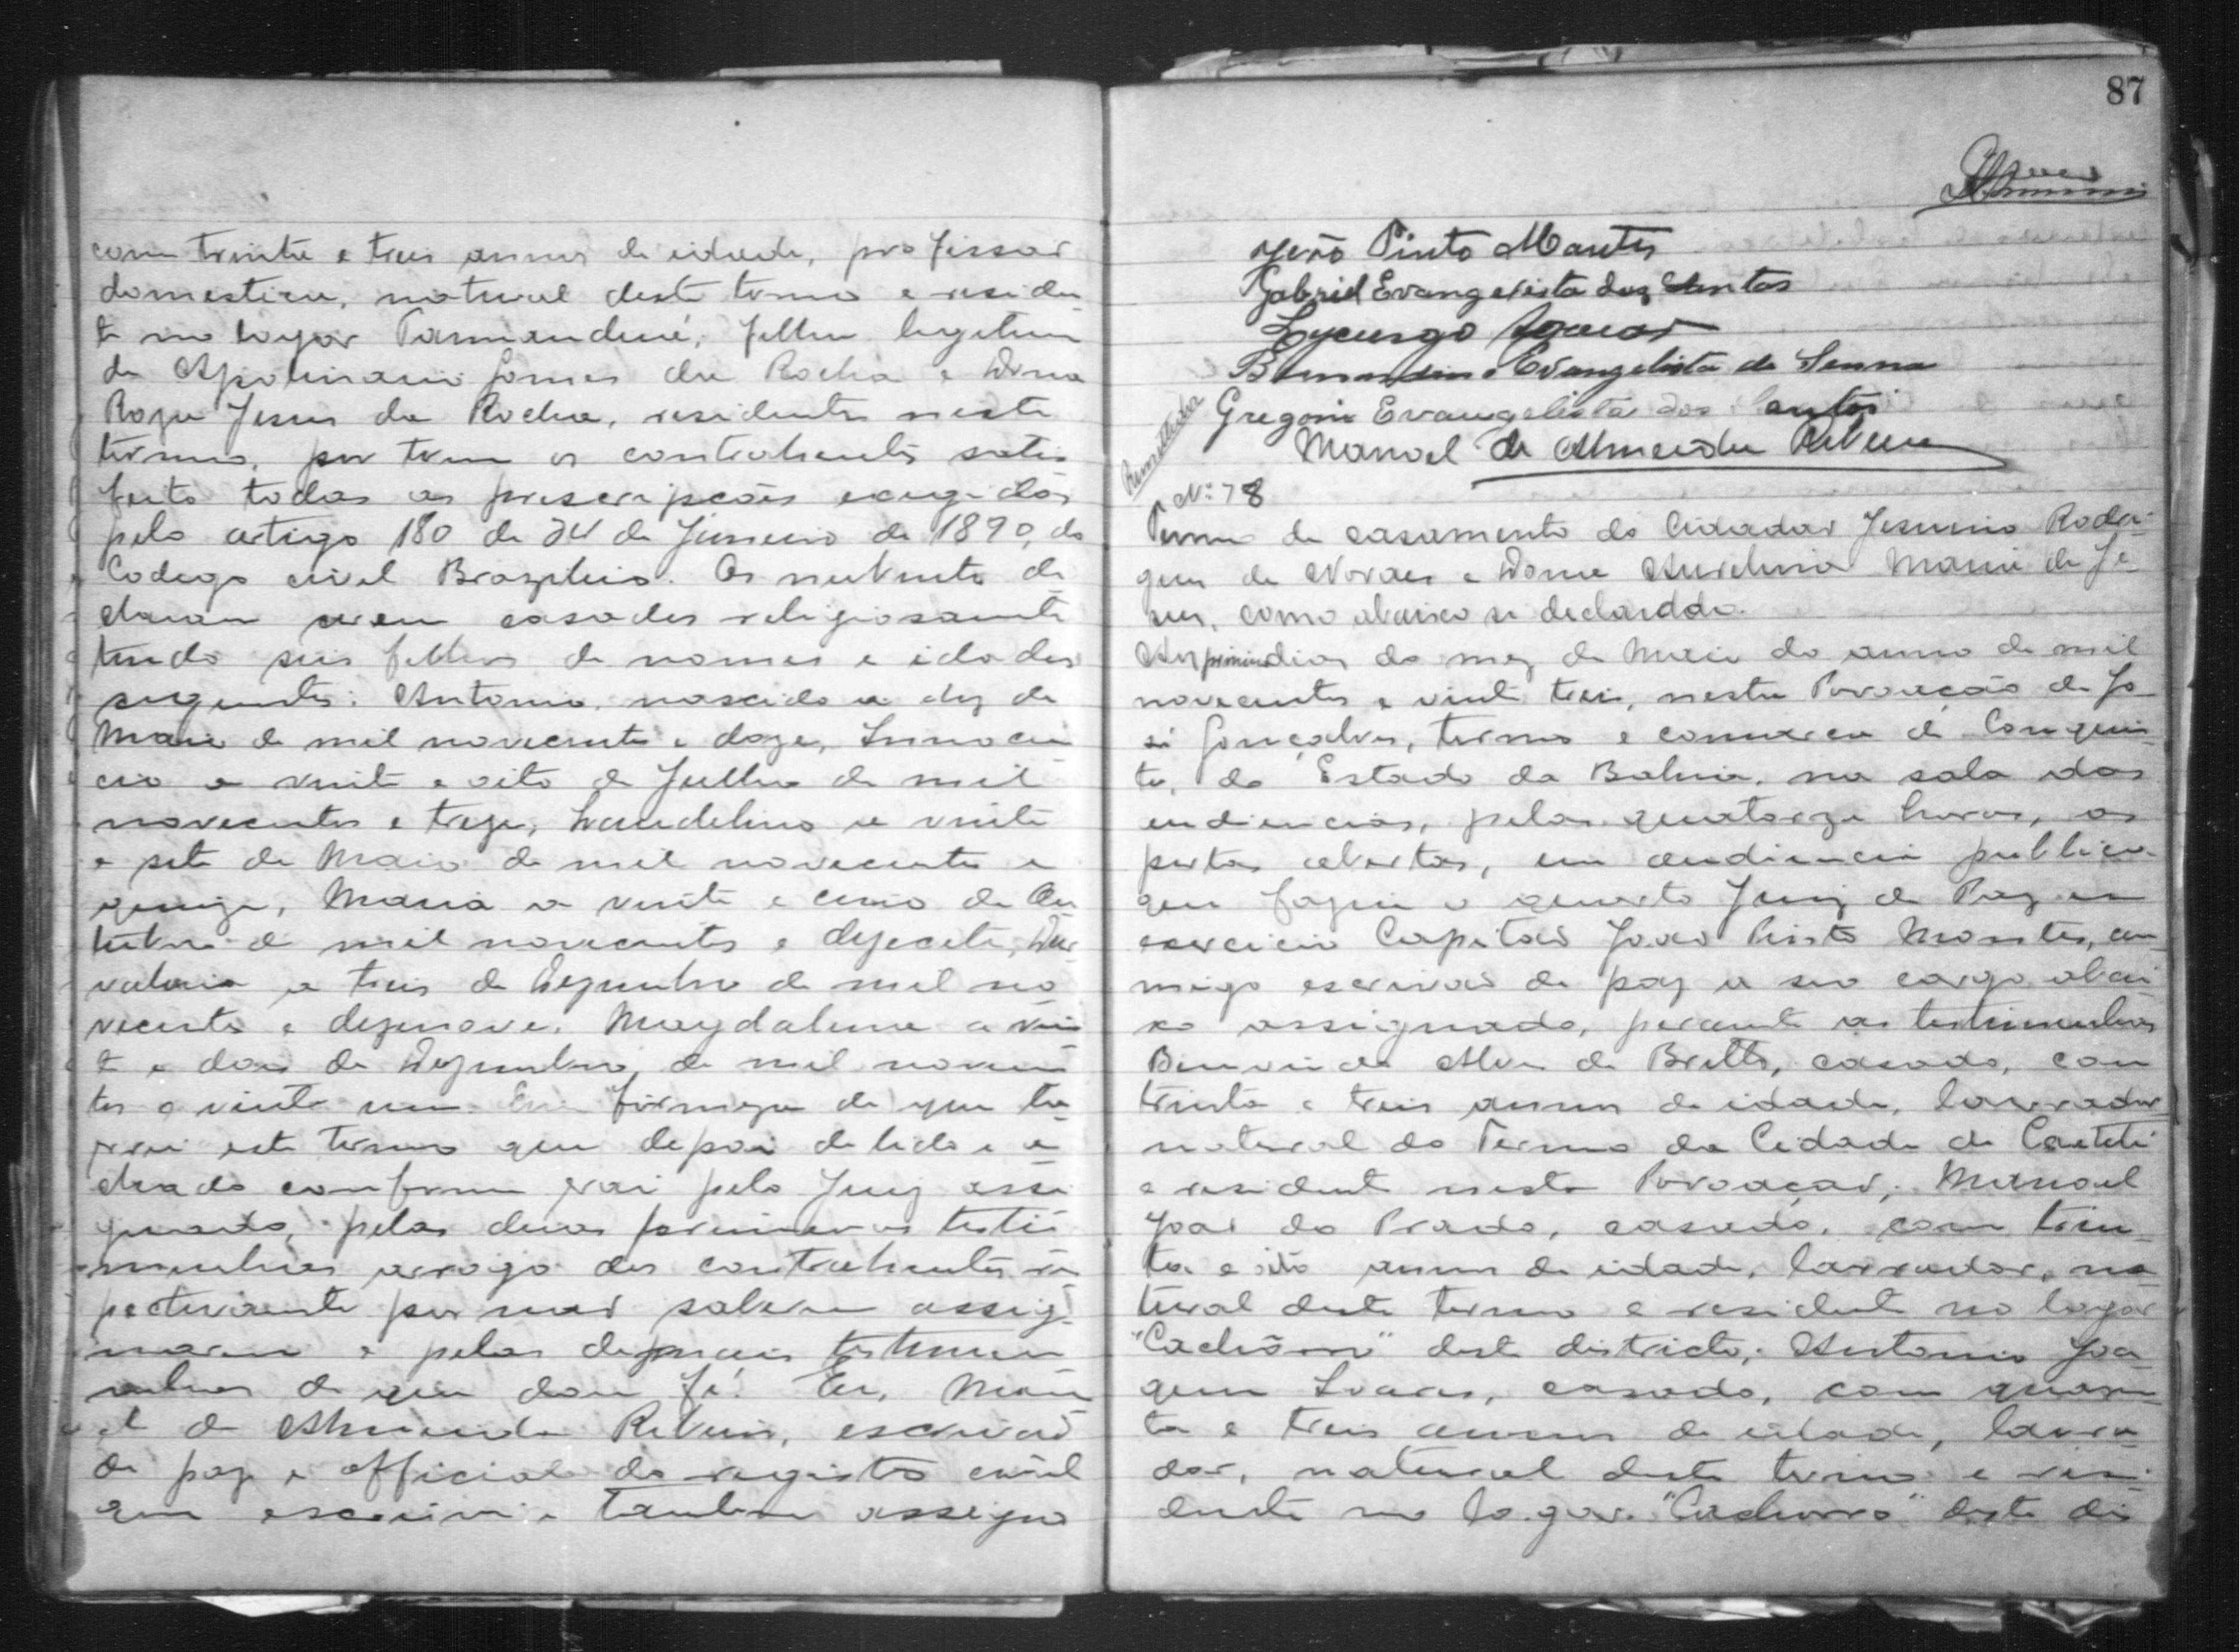 com trinta e treis annos de idade, profissão
domestica, natural deste termo e residen
te no logar Tamanduá, filha legitima
de Apolinario Gomes da Rocha e Dona
Roza Jesus da Rocha, residentes neste
termo, por terem os contrahentes satis
feito todas as prescripções exigidas
pelo artigo 180 de 24 de Janeiro de 1890, do
Codego civil Brazileiro. Os nubentes de
claram serem casados religiosamente
tendo seis filhos de nomes e idades
seguintes: Antonio, nascido a dez de
Maio de mil novecentos e doze, Innocen
cio a vinte e oito de Julho de mil
novecentos e treze, Laudelino a vinte
e sete de Maio de mil novecentos e
quinze, Maria a vinte e cinco de Ou
tubro de mil novecentos e dezecete,
a treis de Dezembro de mil no
vecentos e dezenove, Magdalena a vin
te e dois de Dezembro de mil novecen
tos e vinte um. Em firmeza de que la
vrei este termo que depois de lido e a
chado conforme vai pelo Juiz assi
gnado, pelas duas primeiras teste
munhas arrogo dos contrahentes res
pectivamente por não saberem assig
narem e pelas demais testemu
nhas de que dou fé. Eu, Mano
el de Almeida Ribeiro, escrivão
de paz e official do registro civil
que escrevi e tambem assigno
87
João Pinto Montes
Gabriel Evangerista dos Santos
Lycurgo
Bernardino Evangelista de Senna
Gregorio Evangelista dos Santos
Manoel de Almeida Ribeiro
Nº 78
Termo de casamento do Cidadão Jesuino Rodri
gues de Novaes e Dona Aurelina Maria de Je
sus, como abaixo se declarado.
Aos primeiro dias do mez de Maio do anno de mil
novecentos e vinte treis, nesta Povoação de Jo
sé Gonçalves, termo e comarca de Conquis
ta, do Estado da Bahia, na sala das
audiencias, pelas quatorze horas, as
portas abertas, em audiencia publica
que fazia o quarto Juiz de Paz em
exercicio Capitão João Pinto Montes, co
migo escrivão de paz a seo cargo abai
xo assignado, perante as testemunhas
Bemvindo Alves de Britto, casado, com
trinta e treis annos de idade, lavrador
natural do Termo da Cidade de Caeteté
e residente nesta Povoação; Manoel
João do Prado, casado, com trin
ta e oito annos de idade, lavrador, na
tural deste termo e residente no logar
deste districto; Antonio Joa
quim Soares, casado, com quaren
ta e treis annos de idade, lavra
dor, natural deste termo e resi
dente no logar "Cachorro" deste dis